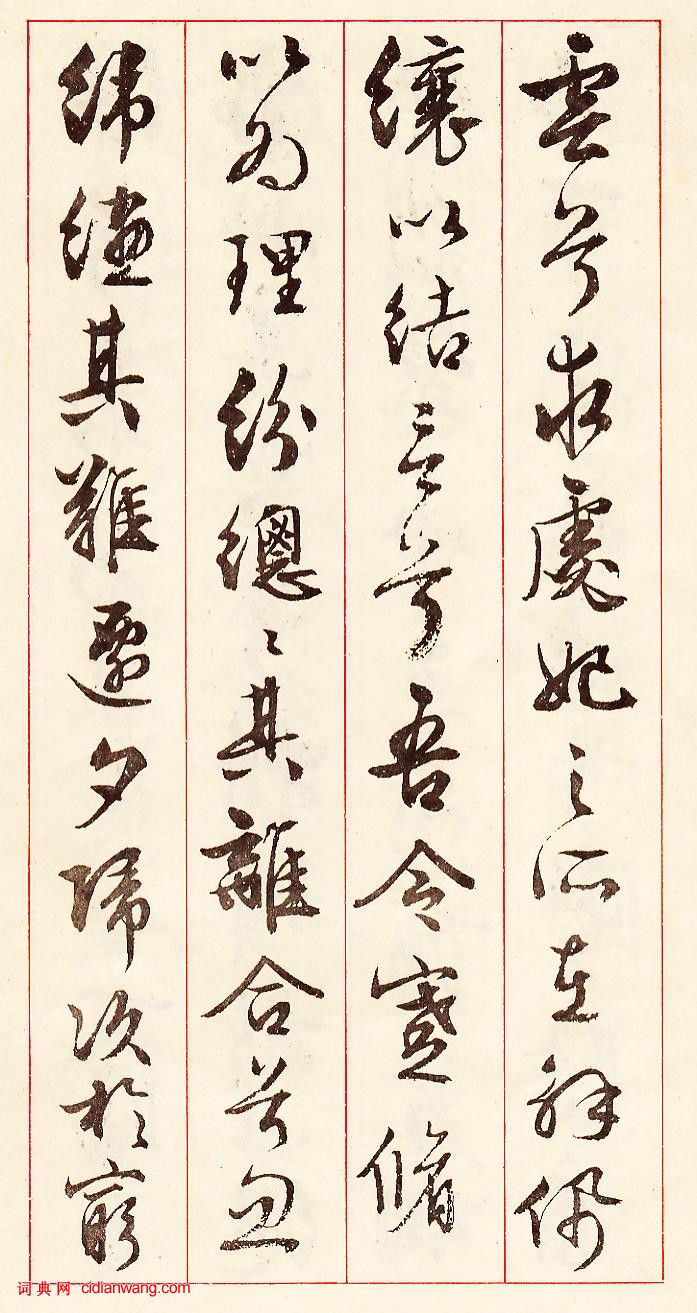 雲兮求虙妃之所在解佩
纕以結言兮吾令蹇脩
以為理紛總〻其離合兮忽
緯繣其難遷夕歸次於窮
词典网 cidianwang.com